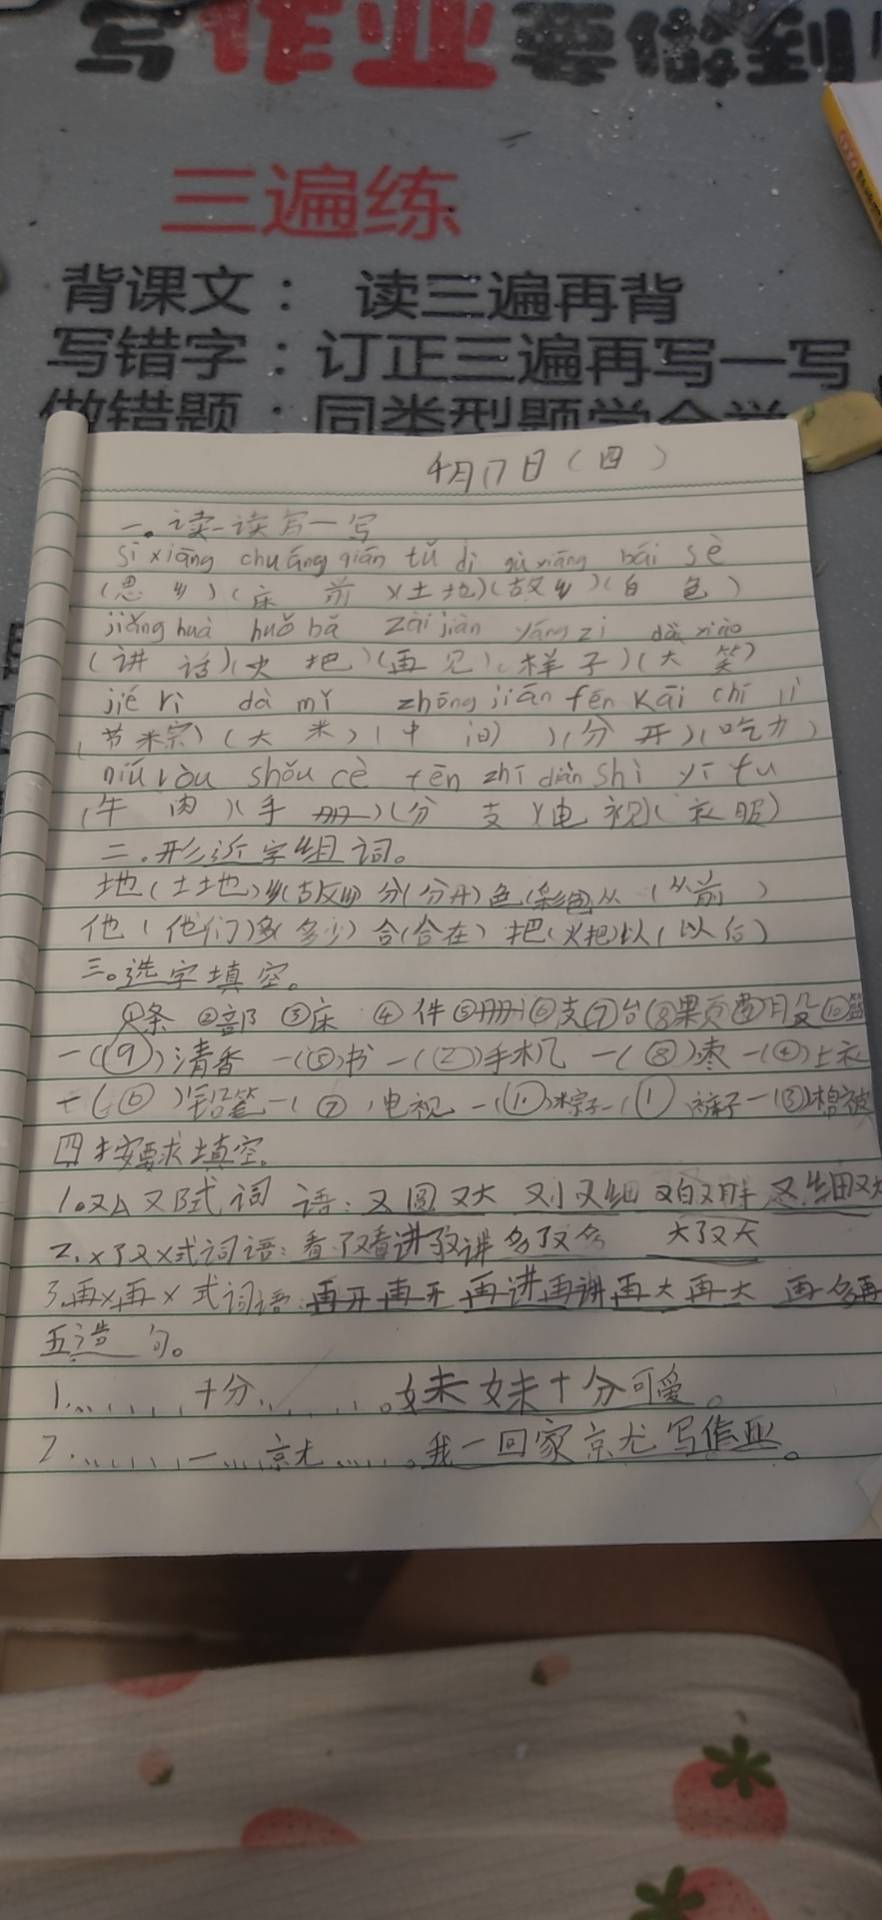 写作业要做到
三遍练
背课文： 读三遍再背
写错字：订正三遍再写一写
做错题：同类型题学会举
4月17日（四）
一。读一读写一写
sī xiāng chuáng qián tǔ dì gù xiāng bái sè
（思乡）（床前）（土地）（故乡）（白色）
jiǎng huà huǒ bǎ zài jiàn yàng zi dà xiào
（讲话）（火把）（再见）（样子）（大笑）
jié rì dà mǐ zhōng jiān fēn kāi chī lì
（大米）（中间）（分开）（吃力）
niú ròu shǒu cè fēn zhī diàn shì yī fu
（牛肉）（手册）（分支）（电视）（衣服）
二.形近字组词。
地（土地）乡（故乡）分（分开）色（彩色）从（从前）
他（他们）多（多少）合（合在）把（火把）以（以后）
三。选字填空。
①条 ②部 ③床 ④件 ⑤册 ⑥支 ⑦台 ⑧果
一（⑨）清香 一（⑤）书 一（②）手机 一（⑧）枣 一（④）上衣
一（⑥）铅笔 一（⑦）电视 一（⑩）粽子 一（①）裤子 一（③）棉被
四按要求填空。
1。又A又B式词语：又圆又大 又小又细 又白又胖 又细又
2.×了又×式词语：看了又看 讲了又讲 多了又多 大了又大
3.再×再×式词语：再开再开 再讲再讲 再大再大 再多再
五造句。
1......十分......。妹妹十分可爱。
2.......一....京尤.....。我一回家京尤写作业。